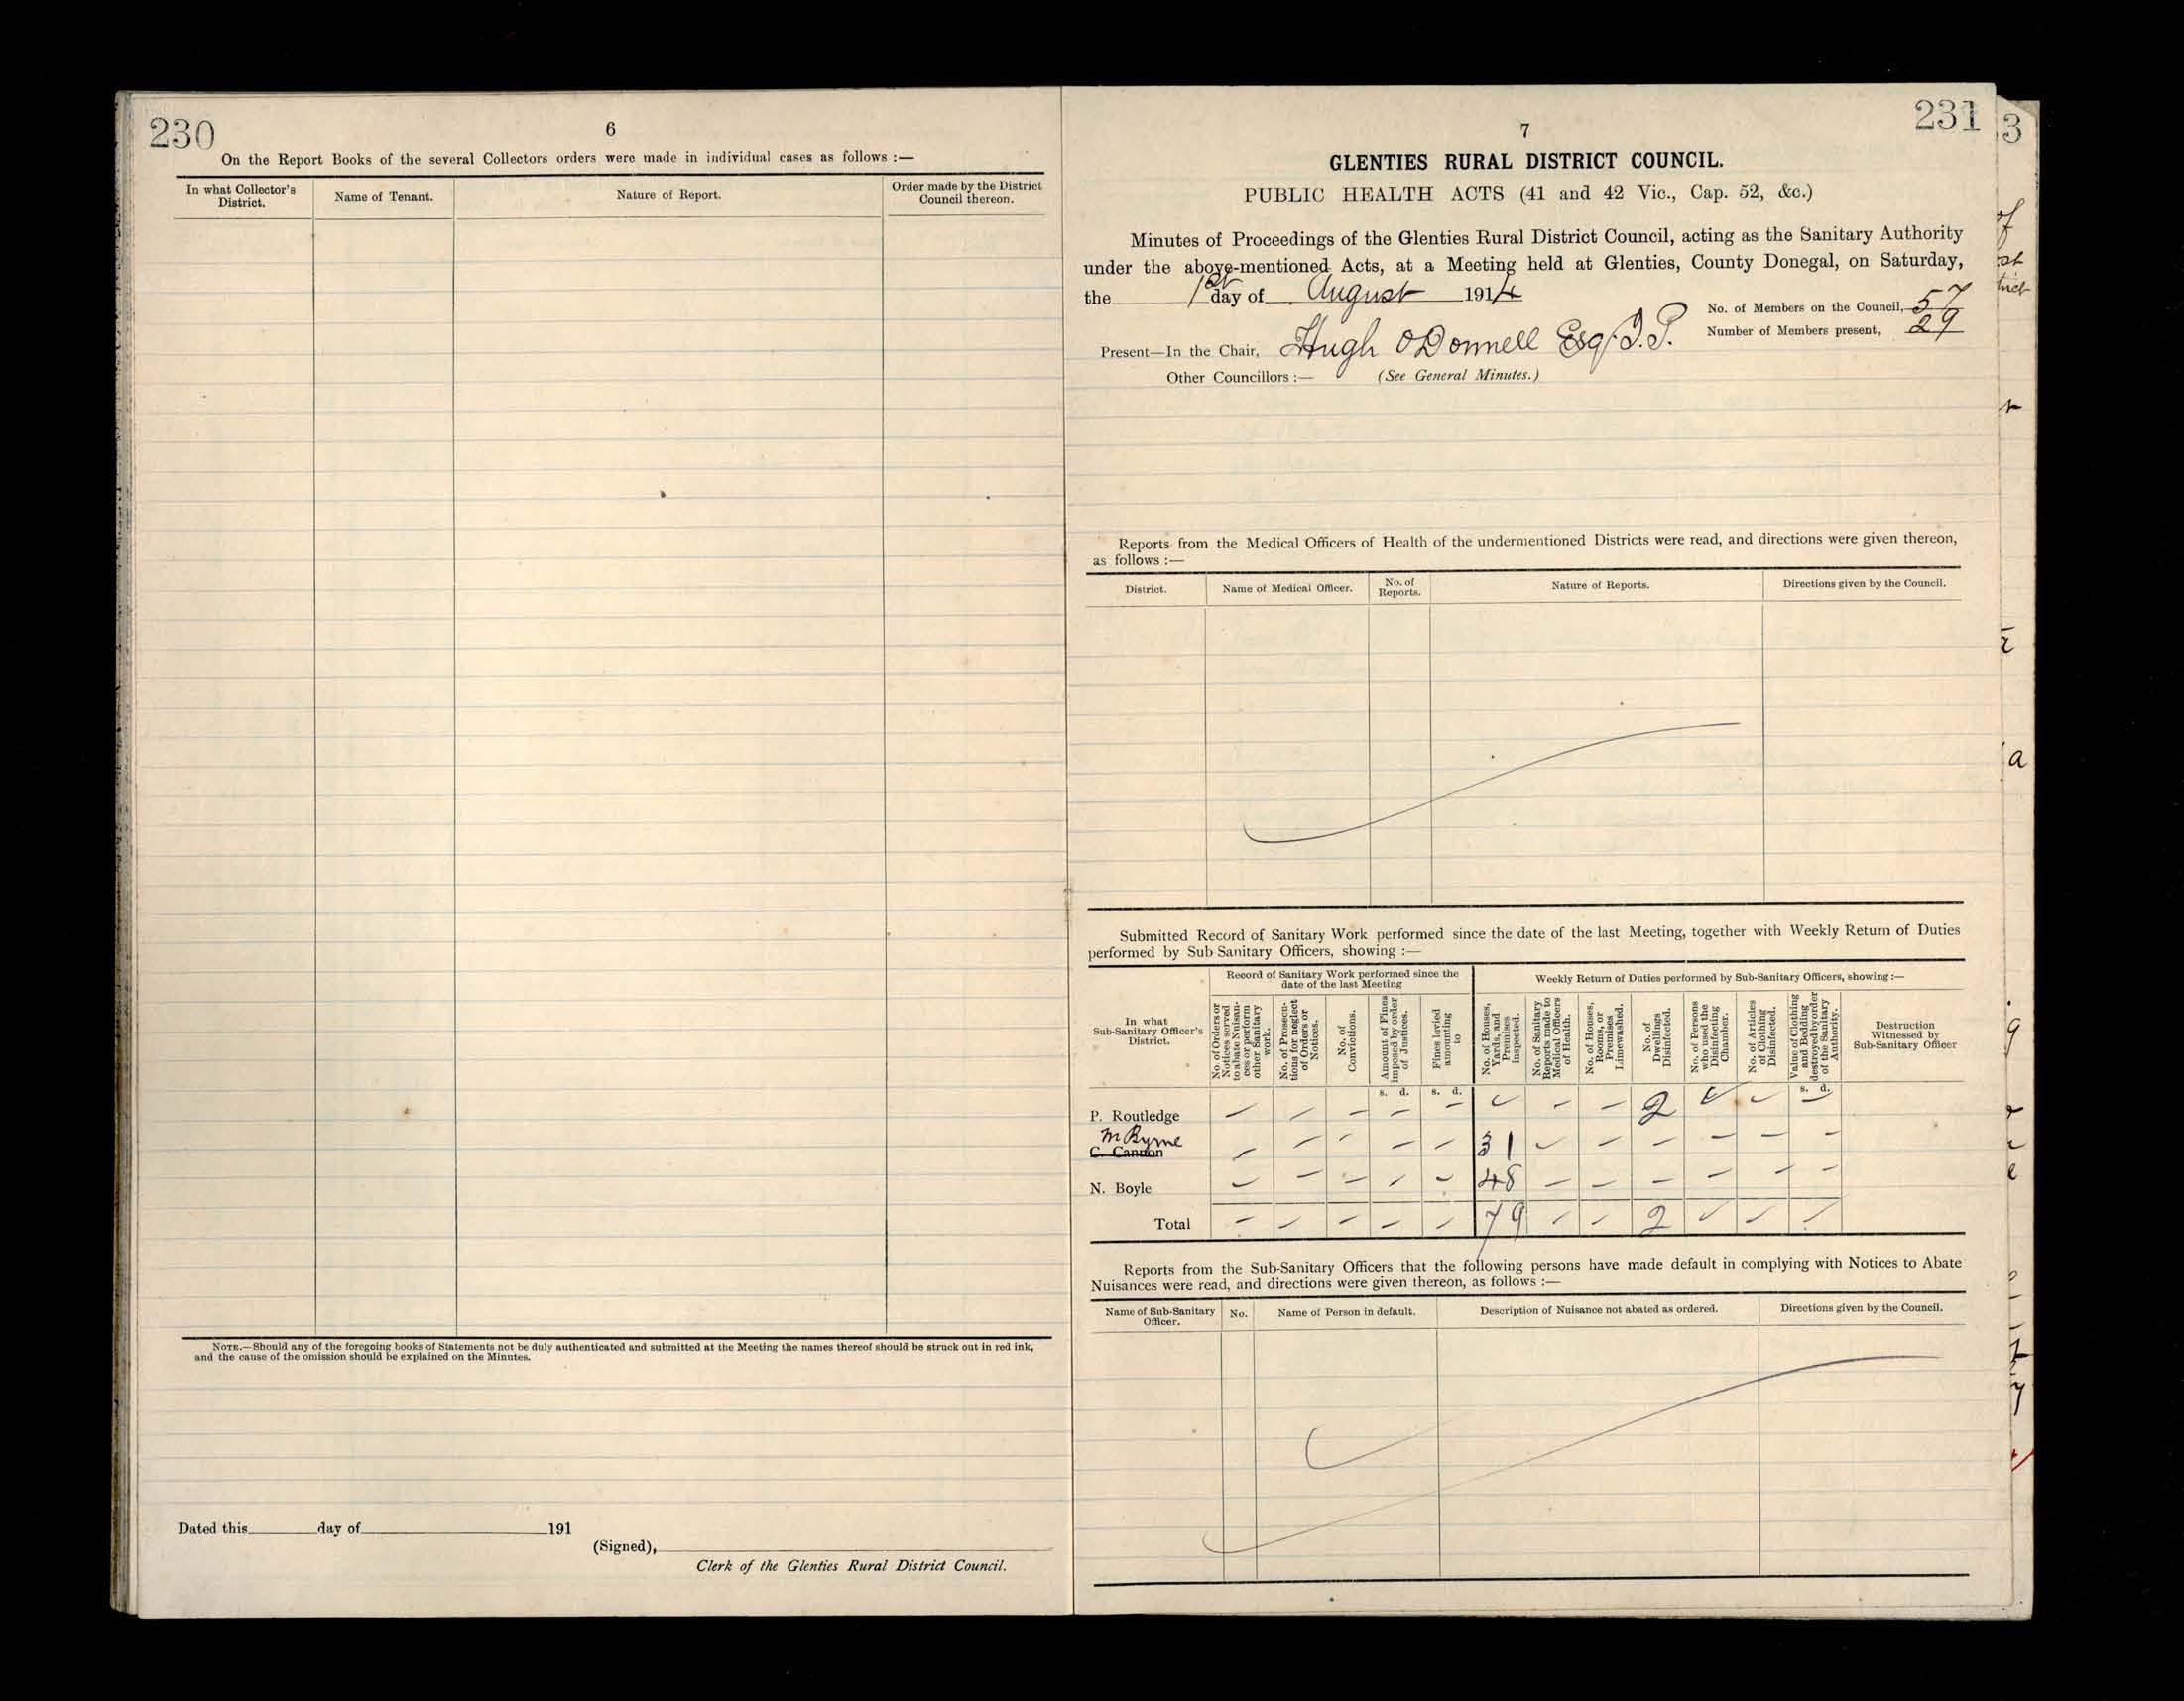 230
6
On the Report Books of the several Collectors orders were made in individual cases as follows :—
In what Collector's District.
Name of Tenant.
Nature of Report.
Order made by the District Council thereon.
NOTE.—Should any of the foregoing books of Statements not be duly authenticated and submitted at the Meeting the names thereof should be struck out in red ink,
and the cause of the omission should be explained on the Minutes.
Dated this day of 191
(Signed),
Clerk of the Glenties Rural District Council.
231
3
7
GLENTIES RURAL DISTRICT COUNCIL.
PUBLIC HEALTH ACTS (41 and 42 Vic., Cap. 52, &c.)
Minutes of Proceedings of the Glenties Rural District Council, acting as the Sanitary Authority
under the above-mentioned Acts, at a Meeting held at Glenties, County Donegal, on Saturday,
the 1st day of August 1914
No. of Members on the Council, 57
Number of Members present, 29
Present—In the Chair, Hugh O'Donnell Esq J.P.
Other Councillors :— (See General Minutes.)
Reports from the Medical Officers of Health of the undermentioned Districts were read, and directions were given thereon,
as follows :—
District.
Name of Medical Officer.
No. of Reports.
Nature of Reports.
Directions given by the Council.
Submitted Record of Sanitary Work performed since the date of the last Meeting, together with Weekly Return of Duties
performed by Sub Sanitary Officers, showing :—
In what Sub-Sanitary Officer's District.
Record of Sanitary Work performed since the date of the last Meeting
Weekly Return of Duties performed by Sub-Sanitary Officers, showing :—
No. of Orders or Notices served to abate Nuisances or perform other Sanitary work.
No. of Prosecutions for neglect of Orders or Notices.
No. of Convictions.
Amount of Fines imposed by order of Justices.
Fines levied amounting to
No. of Houses, Yards, and Premises inspected.
No. of Sanitary Reports made to Medical Officers of Health.
No. of Houses, Rooms, or Premises Limewashed.
No. of Dwellings Disinfected.
No. of Persons who used the Disinfecting Chamber.
No. of Articles of Clothing Disinfected.
Value of Clothing and Bedding destroyed by order of the Sanitary Authority.
Destruction Witnessed by Sub-Sanitary Officer
s. d. s. d. s. d.
P. Routledge — — — — — — — — 2 — — —
M Byrne
C. Cannon — — — — — 31 — — — — — —
N. Boyle — — — — — 48 — — — — — —
Total — — — — — 79 — — 2 — — —
Reports from the Sub-Sanitary Officers that the following persons have made default in complying with Notices to Abate
Nuisances were read, and directions were given thereon, as follows :—
Name of Sub-Sanitary Officer.
No.
Name of Person in default.
Description of Nuisance not abated as ordered.
Directions given by the Council.